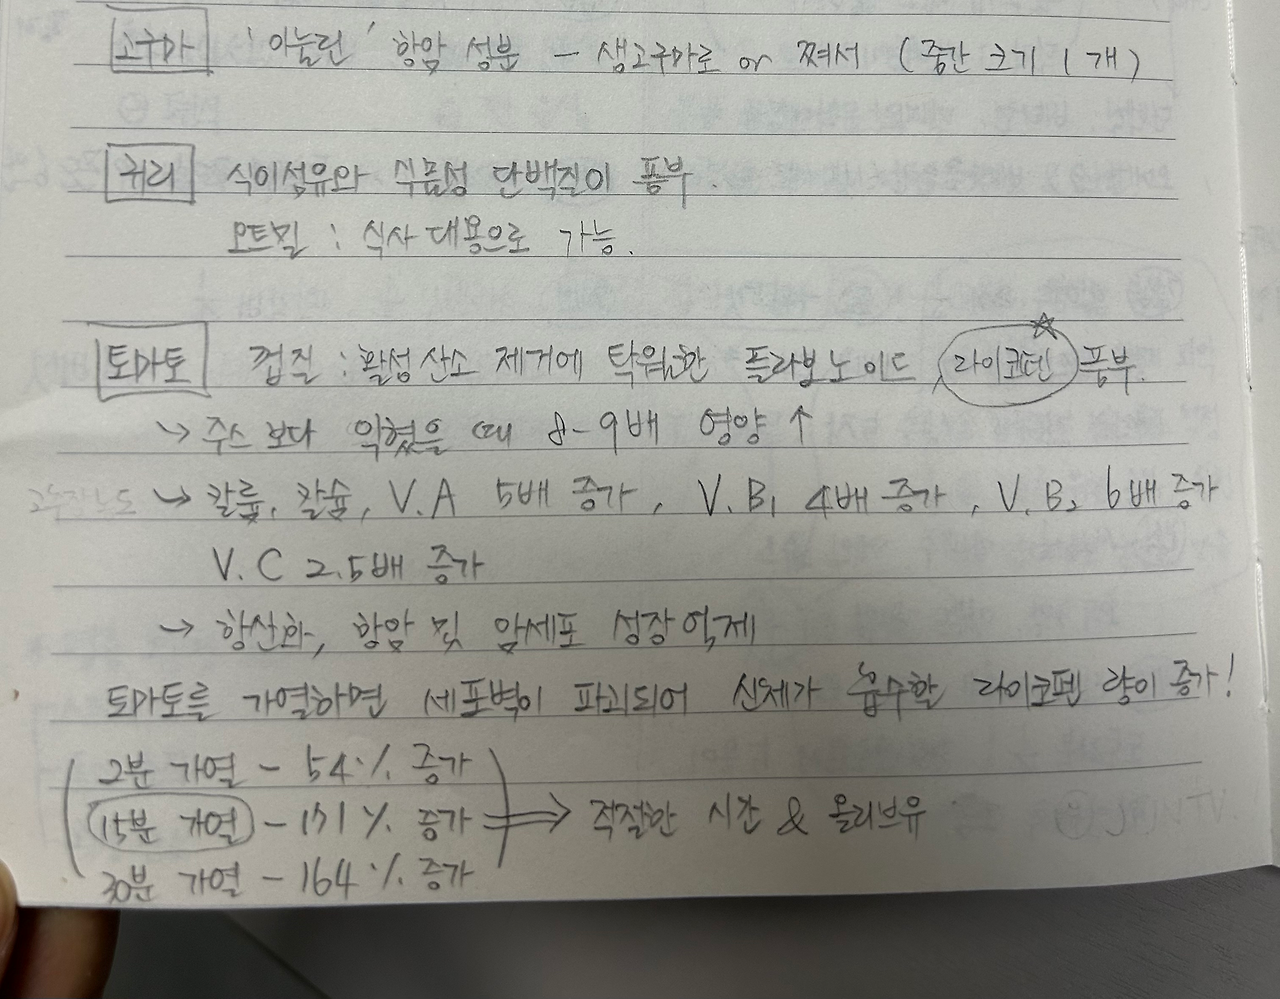 고구마 '이눌린' 항암 성분 - 생고구마로 or 쪄서 (중간 크기 1개)
귀리 식이섬유와 식물성 단백질이 풍부.
오트밀 : 식사 대용으로 가능.
토마토 껍질 : 활성산소 제거에 탁월한 플라보노이드, 라이코펜 풍부.
→ 주스보다 익혔을 때 8-9배 영양 ↑
→ 칼륨, 칼슘, V.A 5배 증가, V.B₁ 4배 증가, V.B₂ 6배 증가
V.C 2.5배 증가
→ 항산화, 항암 및 암세포 성장 억제
토마토를 가열하면 세포벽이 파괴되어 신체가 흡수할 라이코펜 량이 증가!
2분 가열 - 54% 증가
15분 가열 - 171% 증가 ⇒ 적절한 시간 & 올리브유
30분 가열 - 164% 증가